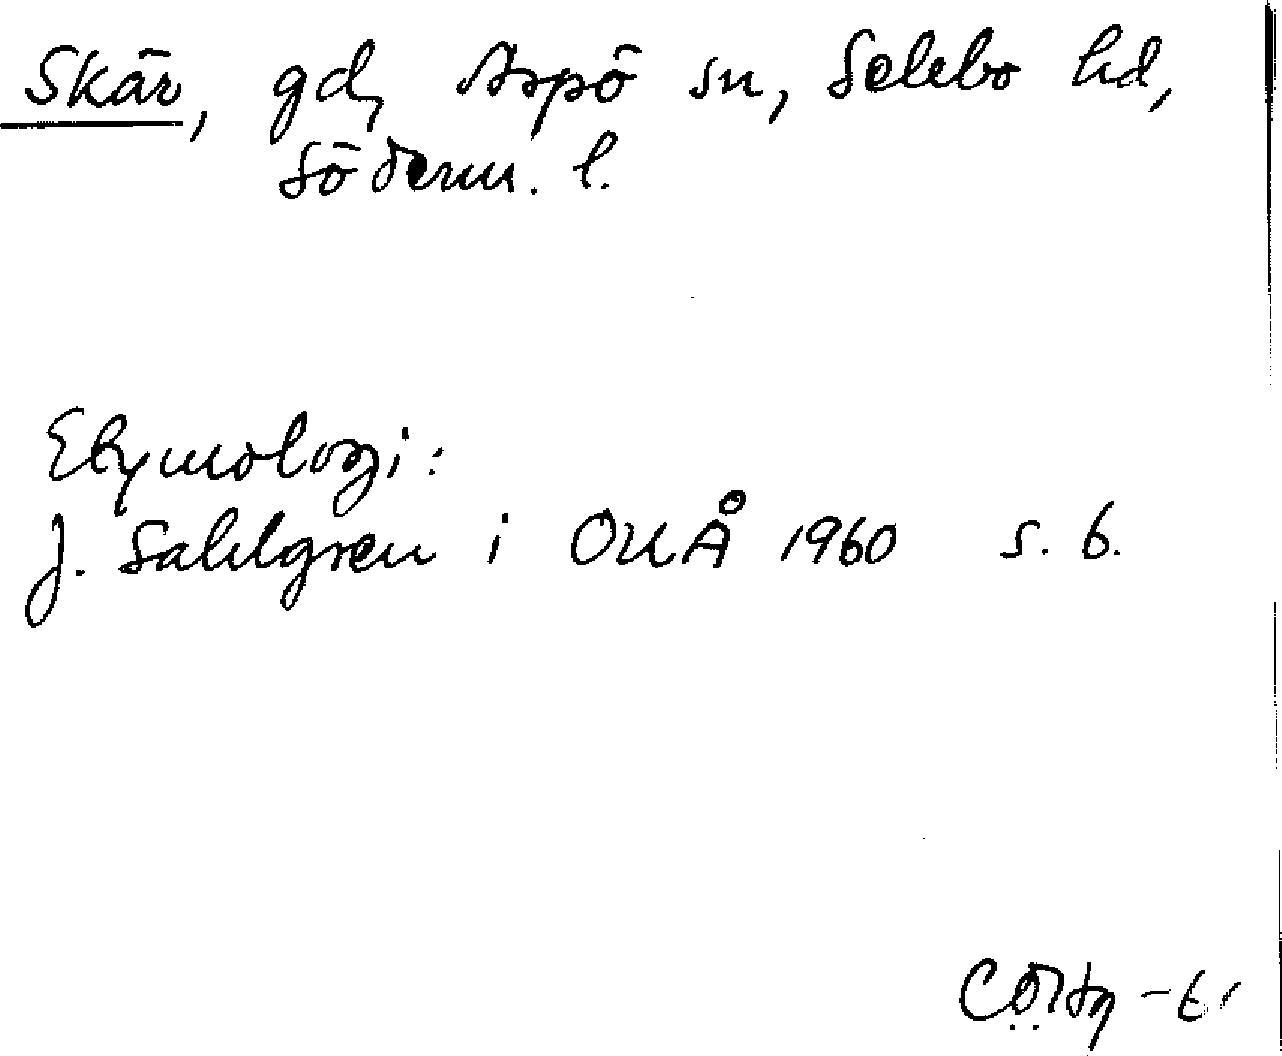 Skär, gd, Aspö sn, Selebo hd,
Söderm. l.
Etymologi:
J. Sahlgren i OUÅ 1960 s. 6.